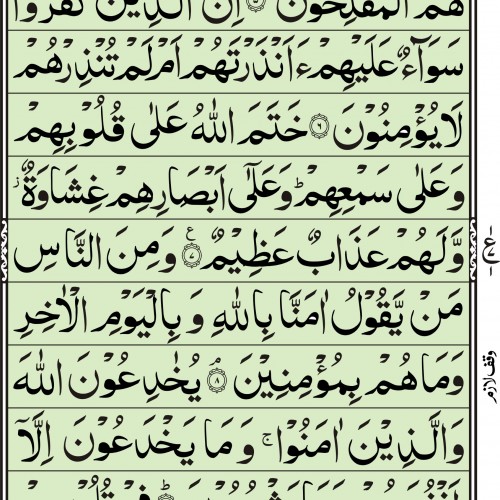 هُمُ الۡمُفۡلِحُوۡنَ ۝۵ اِنَّ الَّذِيۡنَ كَفَرُوۡا
سَوَآءٌ عَلَيۡهِمۡ ءَاَنۡذَرۡتَهُمۡ اَمۡ لَمۡ تُنۡذِرۡهُمۡ
لَا يُؤۡمِنُوۡنَ ۝۶ خَتَمَ اللّٰهُ عَلٰى قُلُوۡبِهِمۡ
وَعَلٰى سَمۡعِهِمۡ ؕ وَعَلٰٓى اَبۡصَارِهِمۡ غِشَاوَةٌ ز
وَّلَهُمۡ عَذَابٌ عَظِيۡمٌ ۝۷ ع وَمِنَ النَّاسِ
مَنۡ يَّقُوۡلُ اٰمَنَّا بِاللّٰهِ وَ بِالۡيَوۡمِ الۡاٰخِرِ
وَمَا هُمۡ بِمُؤۡمِنِيۡنَ ۝۸ يُخٰدِعُوۡنَ اللّٰهَ
وَالَّذِيۡنَ اٰمَنُوۡا ۚ وَ مَا يَخۡدَعُوۡنَ اِلَّاۤ
وقف لازم